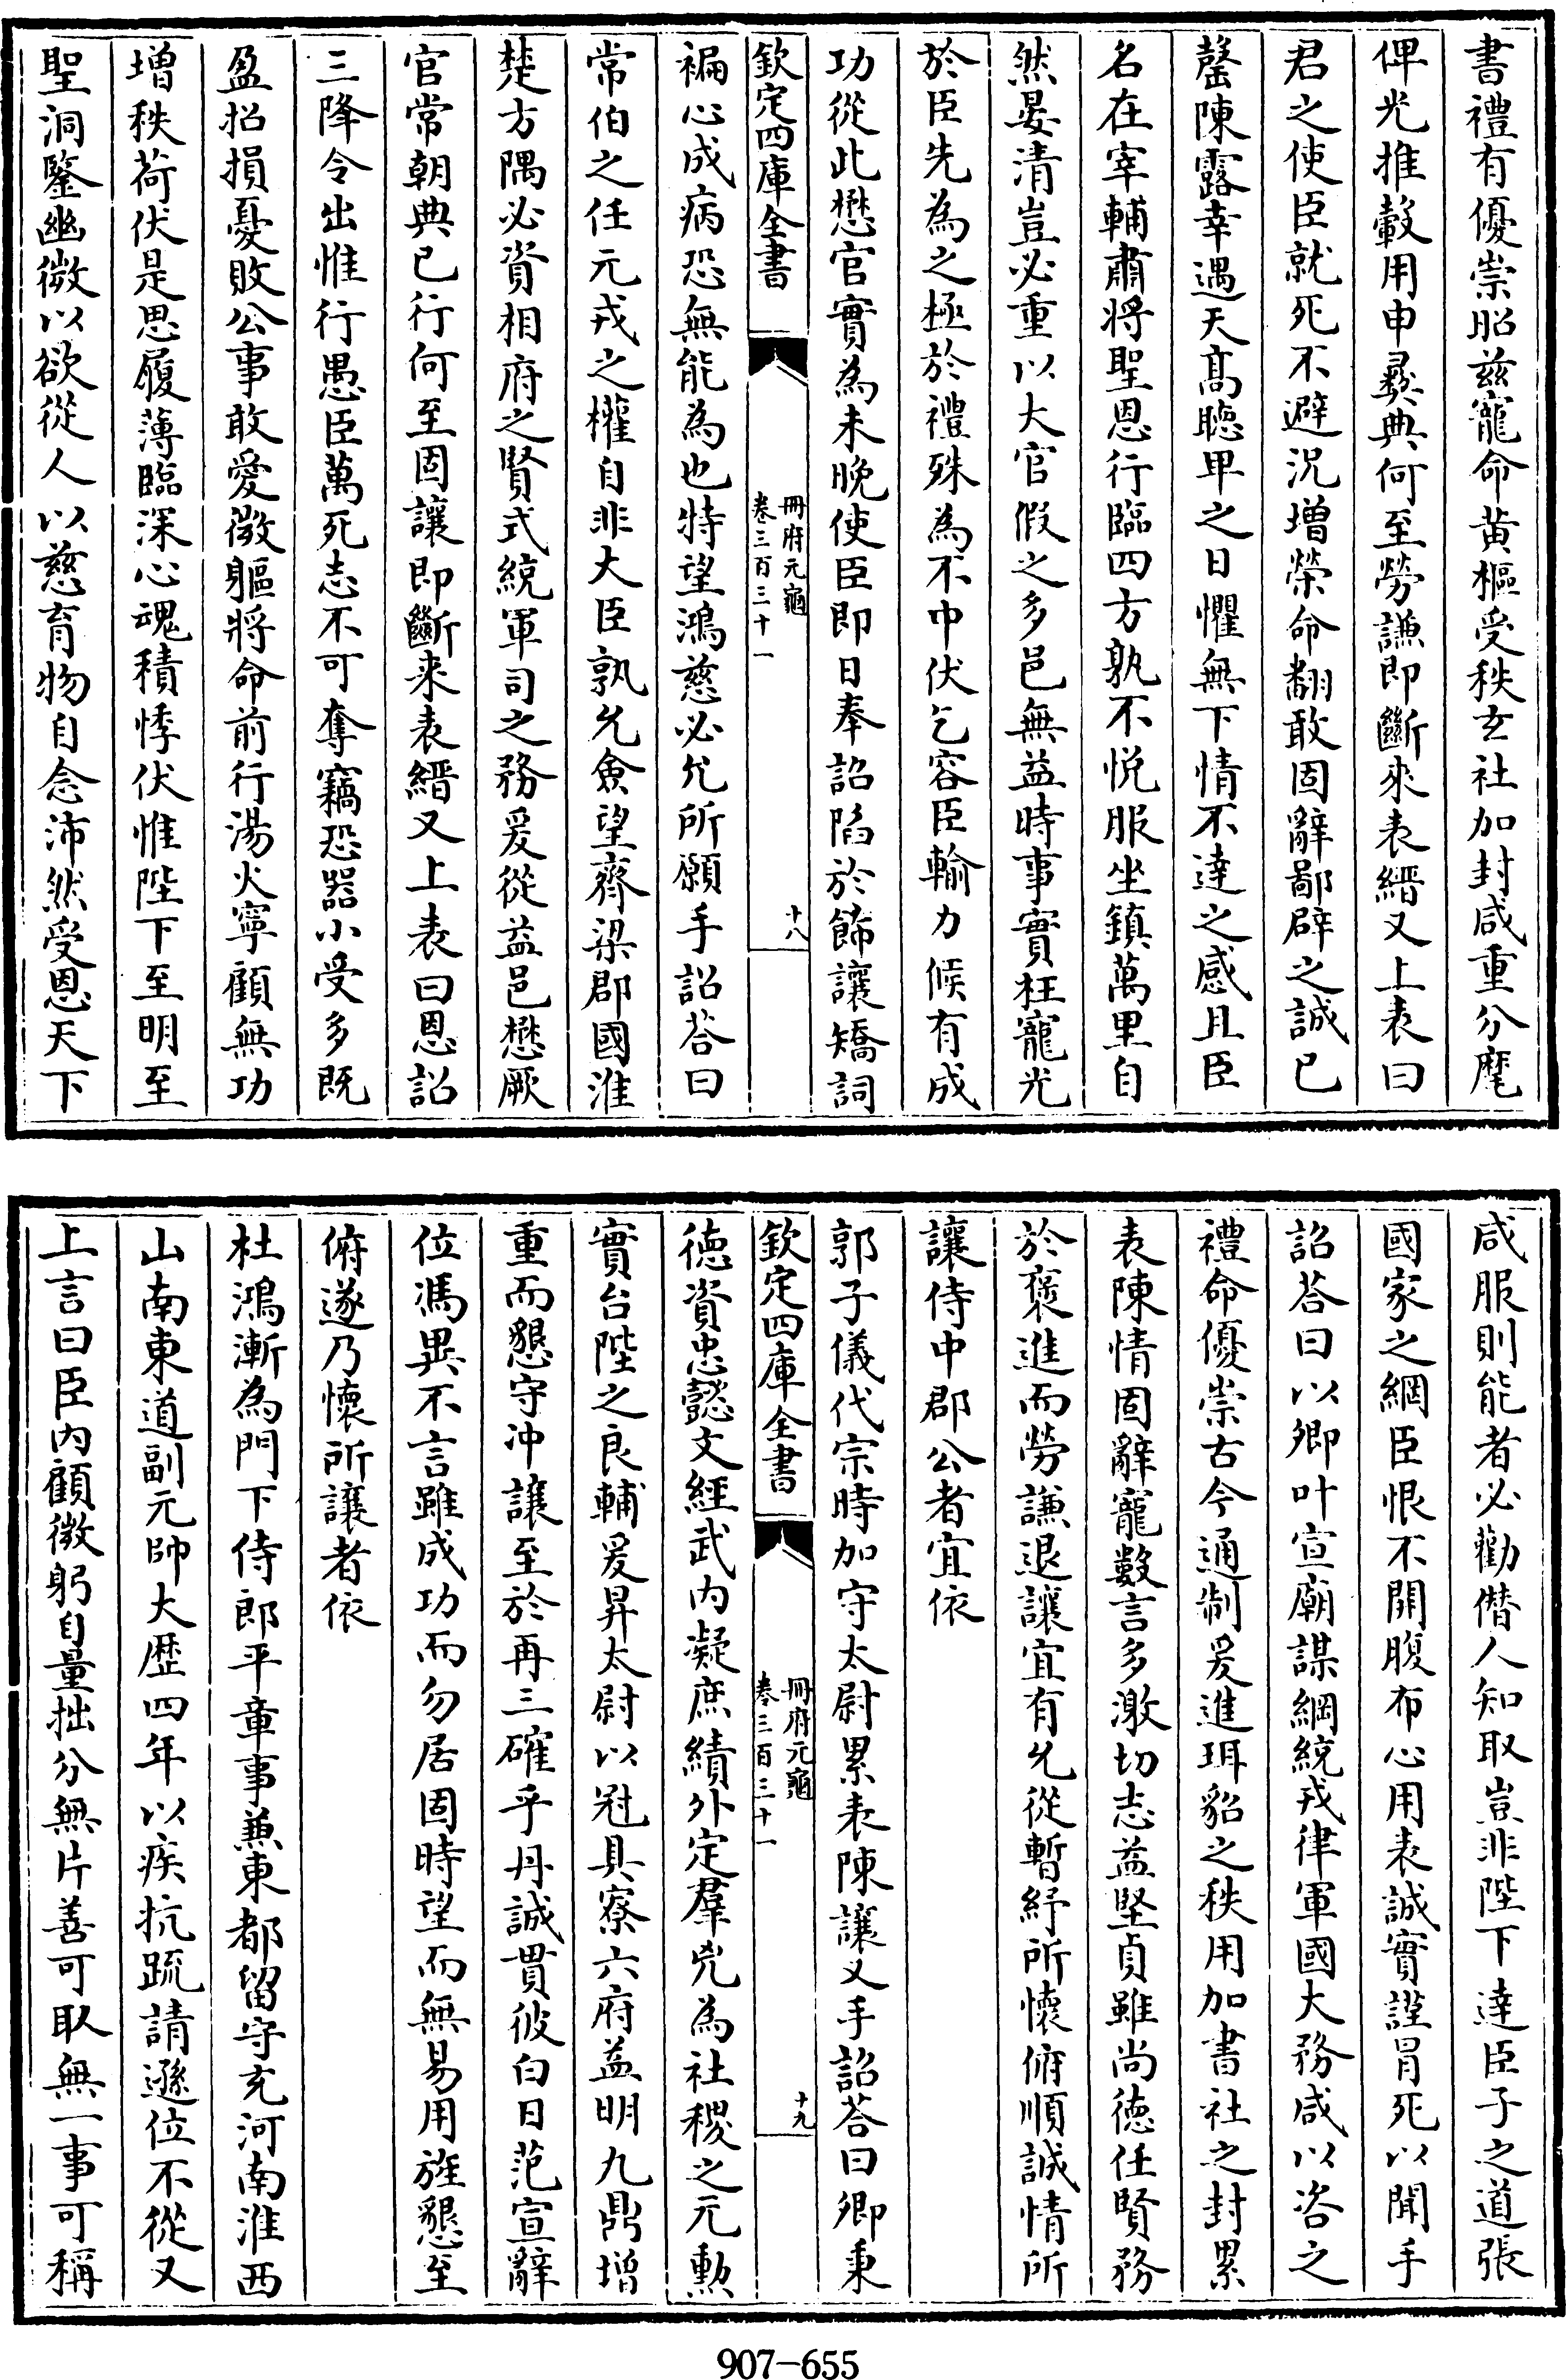 書禮有優崇昭兹寵命黄樞受秩玄社加封咸重分麾
俾光推轂用申彛典何至勞謙即斷來表縉又上表曰
君之使臣就死不避況增榮命翻敢固辭鄙辟之誠已
罄陳露幸遇天髙聽卑之日懼無下情不達之感且臣
名在宰輔肅將聖恩行臨四方孰不悦服坐鎮萬里自
然晏清豈必重以大官假之多邑無益時事實枉寵光
於臣先為之極於禮殊為不中伏乞容臣輸力候有成
功從此懋官實為未晚使臣即日奉詔陷於飾讓矯詞
欽定四庫全書
冊府元龜
卷三百三十一
十八
褊心成病恐無能為也特望鴻慈必允所願手詔荅曰
常伯之任元戎之權自非大臣孰允僉望齊梁郡國淮
楚方隅必資相府之賢式統軍司之務爰從益邑懋厥
官常朝典已行何至固讓即斷来表縉又上表曰恩詔
三降令出惟行愚臣萬死志不可奪竊恐器小受多既
盈招損憂敗公事敢愛微軀將命前行湯火寧顧無功
增秩荷伏是思履薄臨深心魂積悸伏惟陛下至明至
聖洞鑒幽微以欲從人以慈育物自念沛然受恩天下
咸服則能者必勸僭人知取豈非陛下達臣子之道張
國家之綱臣恨不開腹布心用表誠實謹冒死以聞手
詔荅曰以卿叶宣廟謀綱統戎律軍國大務咸以咨之
禮命優崇古今通制爰進珥貂之秩用加書社之封累
表陳情固辭寵數言多激切志益堅貞雖尚徳任賢務
於褒進而勞謙退讓宜有允從暫紓所懷俯順誠情所
讓侍中郡公者宜依
郭子儀代宗時加守太尉累表陳讓又手詔荅曰卿秉
欽定四庫全書
冊府元龜
卷三百三十一
十九
徳資忠懿文經武内凝庶績外定羣兇為社稷之元勲
實台陛之良輔爰昇太尉以冠具寮六府益明九鼎增
重而懇守冲讓至於再三確乎丹誠貫彼白日范宣辭
位馮異不言雖成功而勿居固時望而無易用旌懇至
俯遂乃懷所讓者依
杜鴻漸為門下侍郎平章事兼東都留守充河南淮西
山南東道副元帥大歴四年以疾抗疏請遜位不從又
上言曰臣内顧微躬自量拙分無片善可取無一事可稱
907-655